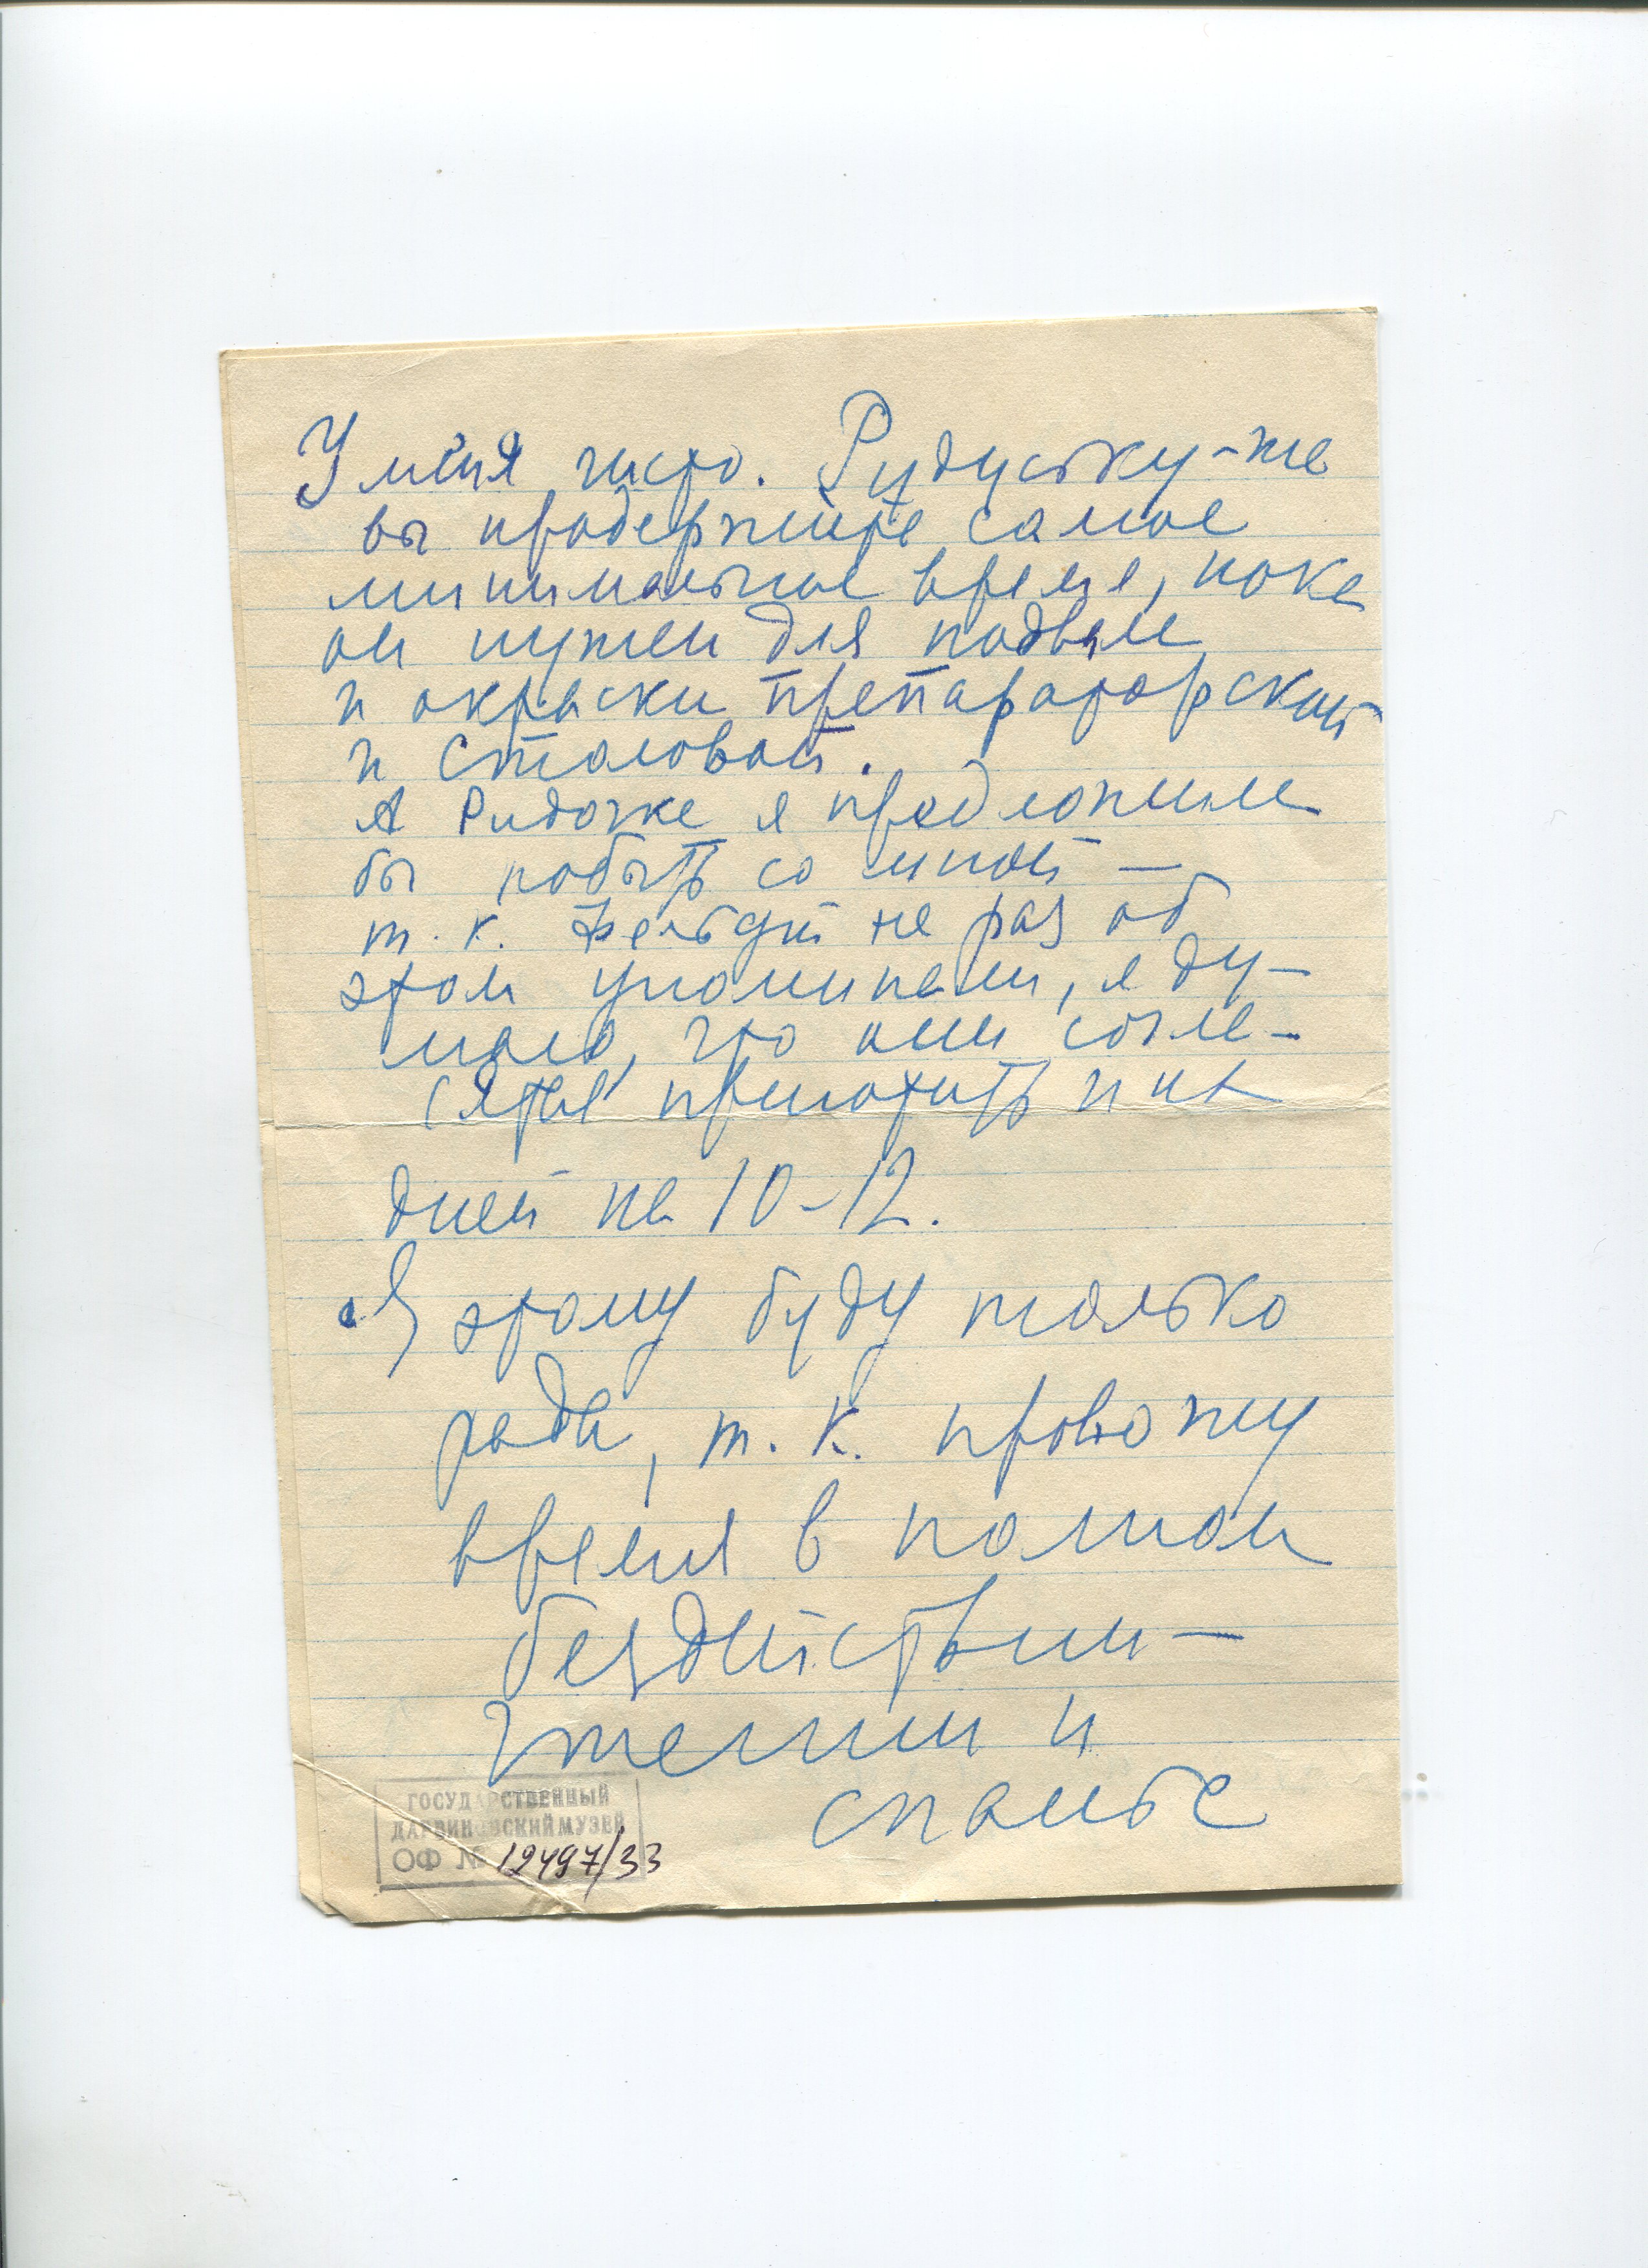 У меня чисто. Рудуську-же
вы продержите самое
минимальное время, пока
он нужен для подвала
и окраски препараторской
и столовой.
А Ридочке я предложила
бы побыть со мной —
т. к. не раз об
этом упоминали, я ду-
маю, что они согла-
сятся приютить и их
дней на 10-12.
Я этому буду только
рада, т. к. провожу
время в полном
бездействии —
чтении и
спанье
ГОСУДАРСТВЕННЫЙ
ДАРВИНОВСКИЙ МУЗЕЙ
ОФ № 12497/33